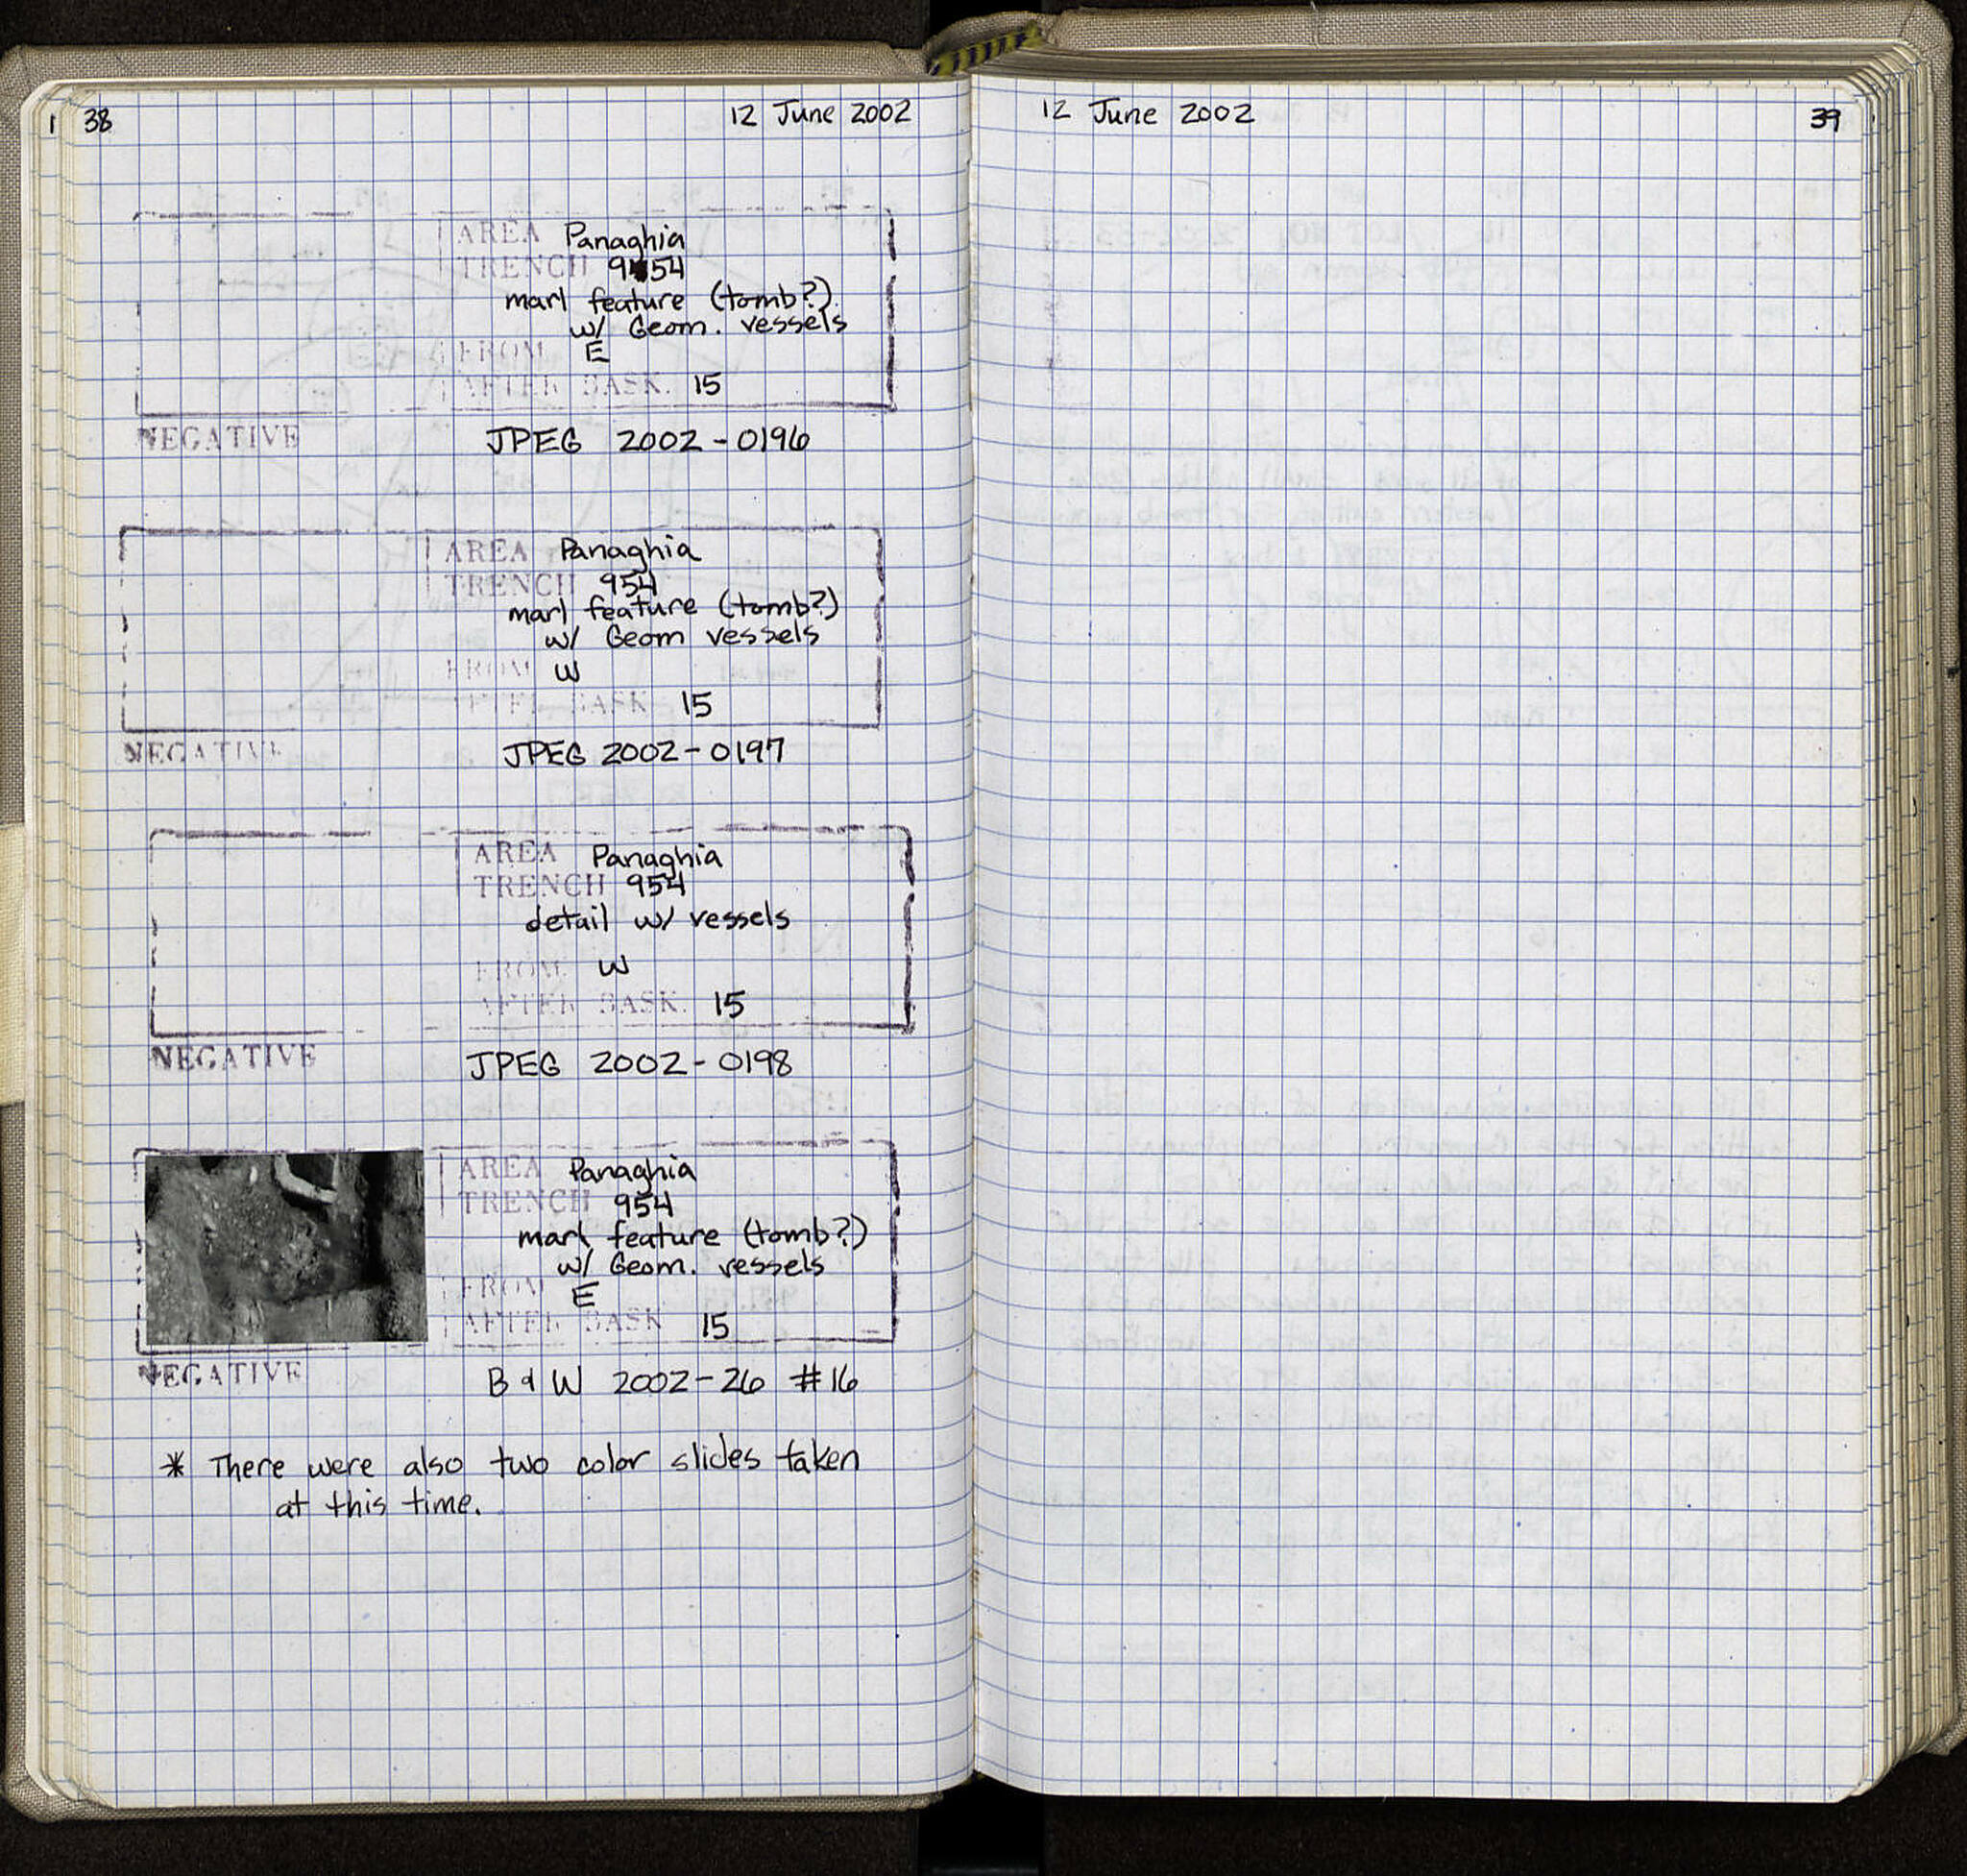 38
12 June 2002
AREA Panaghia
TRENCH 954
marl feature (tomb?)
w/ Geom. vessels
FROM E
AFTER BASK. 15
NEGATIVE JPEG 2002-0196
AREA Panaghia
TRENCH 954
marl feature (tomb?)
w/ Geom vessels
FROM W
AFTER BASK 15
NEGATIVE JPEG 2002-0197
AREA Panaghia
TRENCH 954
detail w/ vessels
FROM W
AFTER BASK. 15
NEGATIVE JPEG 2002-0198
AREA Panaghia
TRENCH 954
marl feature (tomb?)
w/ Geom. vessels
FROM E
AFTER BASK 15
NEGATIVE B & W 2002-26 #16
* There were also two color slides taken
at this time.
12 June 2002
39